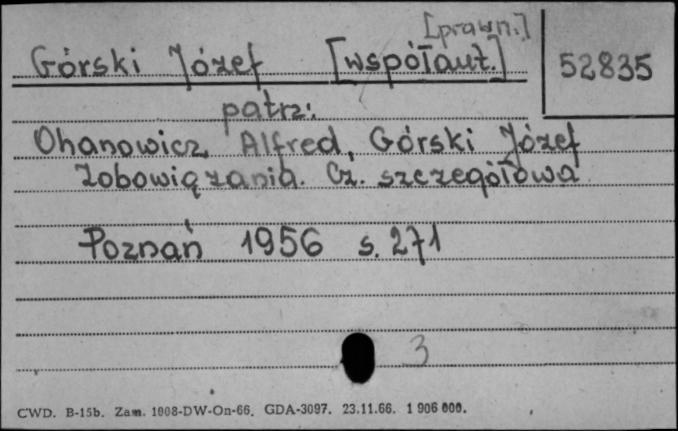 [prawn.]
Górski Józef [współaut.] 52835
patrz:
Ohanowicz, Alfred, Górski Józef
Zobowiązania. Cz. szczegółowa
Poznań 1956 s. 271
3
CWD. B-15b. Zam. 1008-DW-On-66. GDA-3097. 23.11.66. 1 906 000.